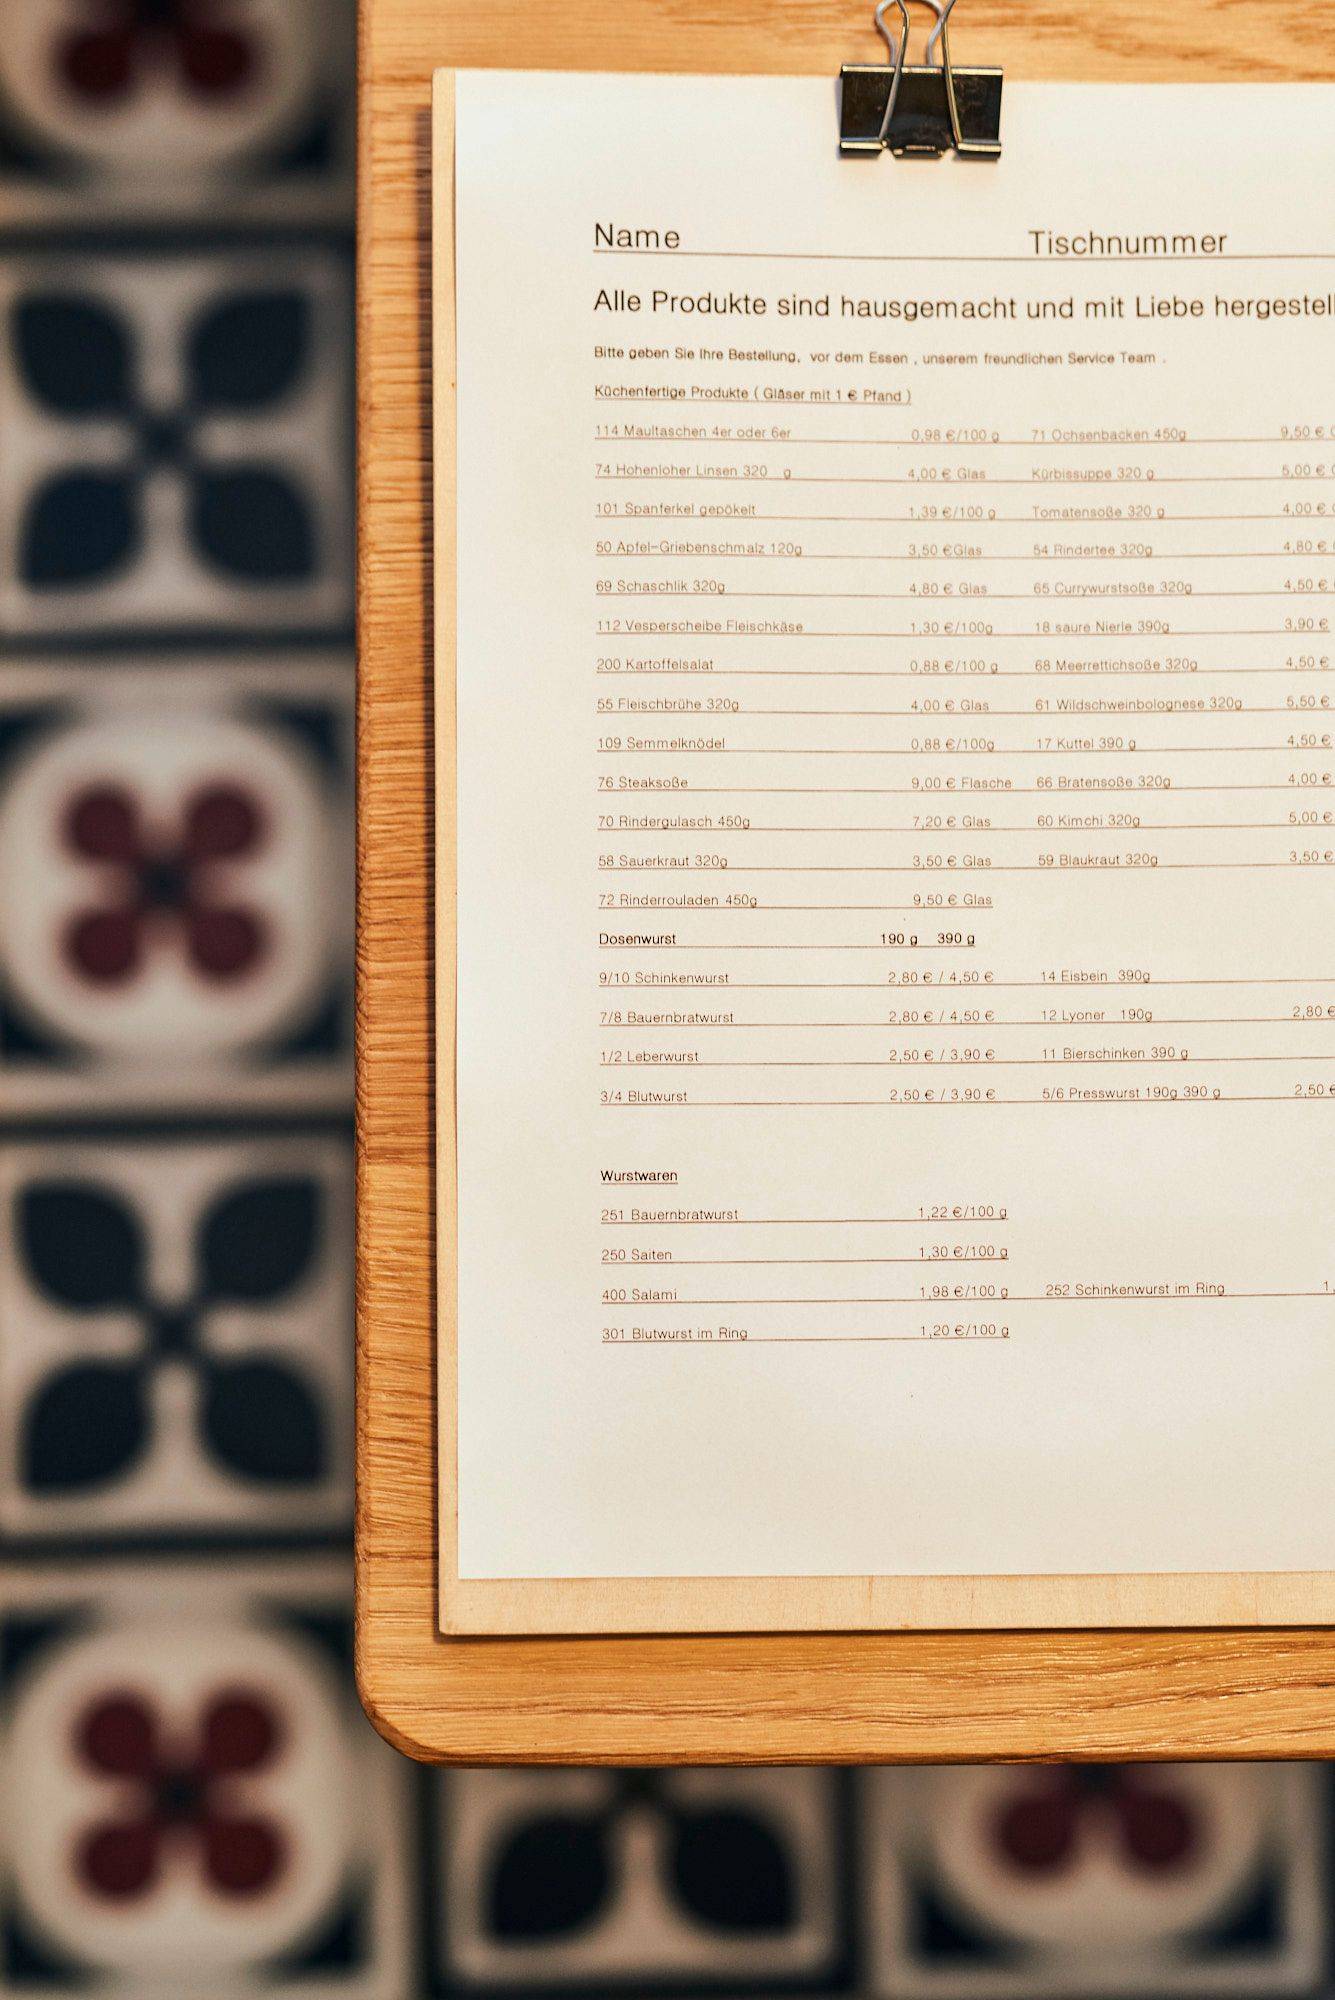 Name Tischnummer
Alle Produkte sind hausgemacht und mit Liebe hergestell
Bitte geben Sie Ihre Bestellung, vor dem Essen , unserem freundlichen Service Team .
Küchenfertige Produkte ( Gläser mit 1 € Pfand )
114 Maultaschen 4er oder 6er 0,98 €/100 g 71 Ochsenbacken 450g 9,50 €
74 Hohenloher Linsen 320 g 4,00 € Glas Kürbissuppe 320 g 5,00 €
101 Spanferkel gepökelt 1,39 €/100 g Tomatensoße 320 g 4,00 €
50 Apfel-Griebenschmalz 120g 3,50 €Glas 54 Rindertee 320g 4,80 €
69 Schaschlik 320g 4,80 € Glas 65 Currywurstsoße 320g 4,50 €
112 Vesperscheibe Fleischkäse 1,30 €/100g 18 saure Nierle 390g 3,90 €
200 Kartoffelsalat 0,88 €/100 g 68 Meerrettichsoße 320g 4,50 €
55 Fleischbrühe 320g 4,00 € Glas 61 Wildschweinbolognese 320g 5,50 €
109 Semmelknödel 0,88 €/100g 17 Kuttel 390 g 4,50 €
76 Steaksoße 9,00 € Flasche 66 Bratensoße 320g 4,00 €
70 Rindergulasch 450g 7,20 € Glas 60 Kimchi 320g 5,00 €
58 Sauerkraut 320g 3,50 € Glas 59 Blaukraut 320g 3,50 €
72 Rinderrouladen 450g 9,50 € Glas
Dosenwurst 190 g 390 g
9/10 Schinkenwurst 2,80 € / 4,50 € 14 Eisbein 390g
7/8 Bauernbratwurst 2,80 € / 4,50 € 12 Lyoner 190g 2,80 €
1/2 Leberwurst 2,50 € / 3,90 € 11 Bierschinken 390 g
3/4 Blutwurst 2,50 € / 3,90 € 5/6 Presswurst 190g 390 g 2,50 €
Wurstwaren
251 Bauernbratwurst 1,22 €/100 g
250 Saiten 1,30 €/100 g
400 Salami 1,98 €/100 g 252 Schinkenwurst im Ring 1,
301 Blutwurst im Ring 1,20 €/100 g